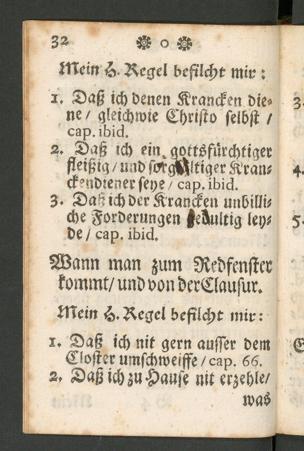 32
Mein H. Regel befilcht mir:
1. Daß ich denen Krancken die-
ne / gleichwie Christo selbst /
cap. ibid.
2. Daß ich ein gottsfürchtiger
fleißig / und sorgfältiger Kran-
ckendiener seye / cap. ibid.
3. Daß ich der Krancken unbilli-
che Forderungen gedultig ley-
de / cap. ibid.
Wann man zum Redfenster
kommt / und von der Clausur.
Mein H. Regel befilcht mir:
1. Daß ich nit gern ausser dem
Closter umschweiffe / cap. 66.
2. Daß ich zu Hause nit erzehle /
was
3.
4.
5.